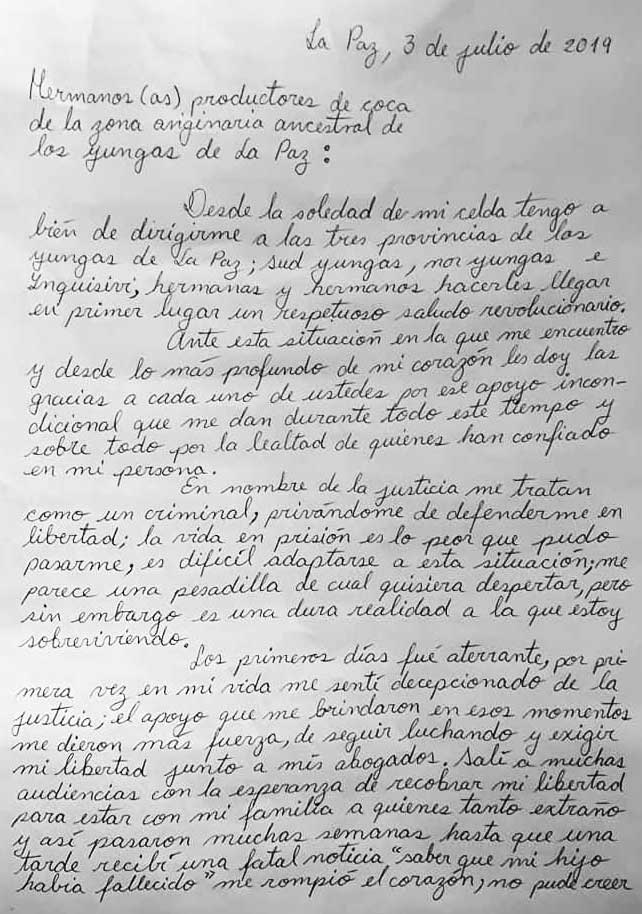 La Paz, 3 de julio de 2019
Hermanos (as) productores de coca
de la zona originaria ancestral de
los yungas de La Paz :
Desde la soledad de mi celda tengo a
bién de dirigirme a las tres provincias de los
yungas de La Paz; sud yungas, nor yungas e
Inquisivi, hermanas y hermanos hacerles llegar
en primer lugar un respetuoso saludo revolucionario.
Ante esta situación en la que me encuentro
y desde lo más profundo de mi corazón les doy las
gracias a cada uno de ustedes por ese apoyo incon-
dicional que me dan durante todo este tiempo y
sobre todo por la lealtad de quienes han confiado
en mi persona.
En nombre de la justicia me tratan
como un criminal, privándome de defenderme en
libertad; la vida en prisión es lo peor que pudo
pasarme, es difícil adaptarse a esta situación; me
parece una pesadilla de cual quisiera despertar, pero
sin embargo es una dura realidad a la que estoy
sobreviviendo.
Los primeros días fué aterrante, por pri-
mera vez en mi vida me sentí decepcionado de la
justicia; el apoyo que me brindaron en esos momentos
me dieron más fuerza, de seguir luchando y exigir
mi libertad junto a mis abogados. Salí a muchas
audiencias con la esperanza de recobrar mi libertad
para estar con mi familia a quienes tanto extraño
y así pasaron muchas semanas hasta que una
tarde recibí una fatal noticia "saber que mi hijo
había fallecido" me rompió el corazón, no pude creer